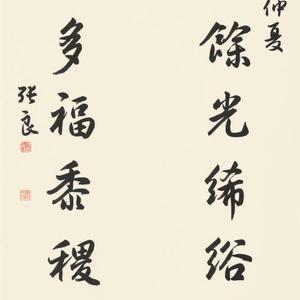 仲夏
餘光絺綌
多福黍稷
張良